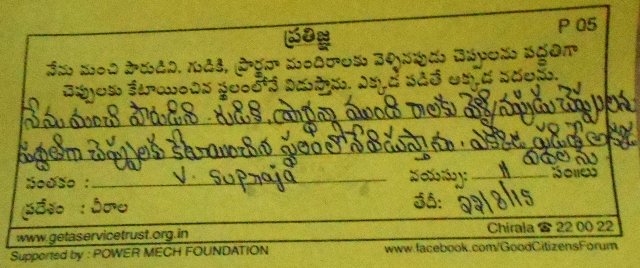 ప్రతిజ్ఞ
P 05
నేను మంచి పౌరుడిని. గుడికి, ప్రార్థనా మందిరాలకు వెళ్ళినపుడు చెప్పులను పద్ధతిగా
చెప్పులకు కేటాయించిన స్థలంలోనే విడుస్తాను. ఎక్కడ పడితే అక్కడ వదలను.
నేను మంచి పౌరుడిని. గుడికి ప్రార్థనా మందిరాలకు వెళ్ళినప్పుడు చెప్పులను
పద్ధతిగా చెప్పులకు కేటాయించిన స్థలంలోనే విడుస్తాను. ఎక్కడ పడితే అక్కడ
వదలను
సంతకం : V. Supraja వయస్సు: 11 సం॥లు
ప్రదేశం : చీరాల తేదీ: 22/8/15
www.getaservicetrust.org.in Chirala ☎ 22 00 22
Supported by : POWER MECH FOUNDATION www.facebook.com/GoodCitizensForum